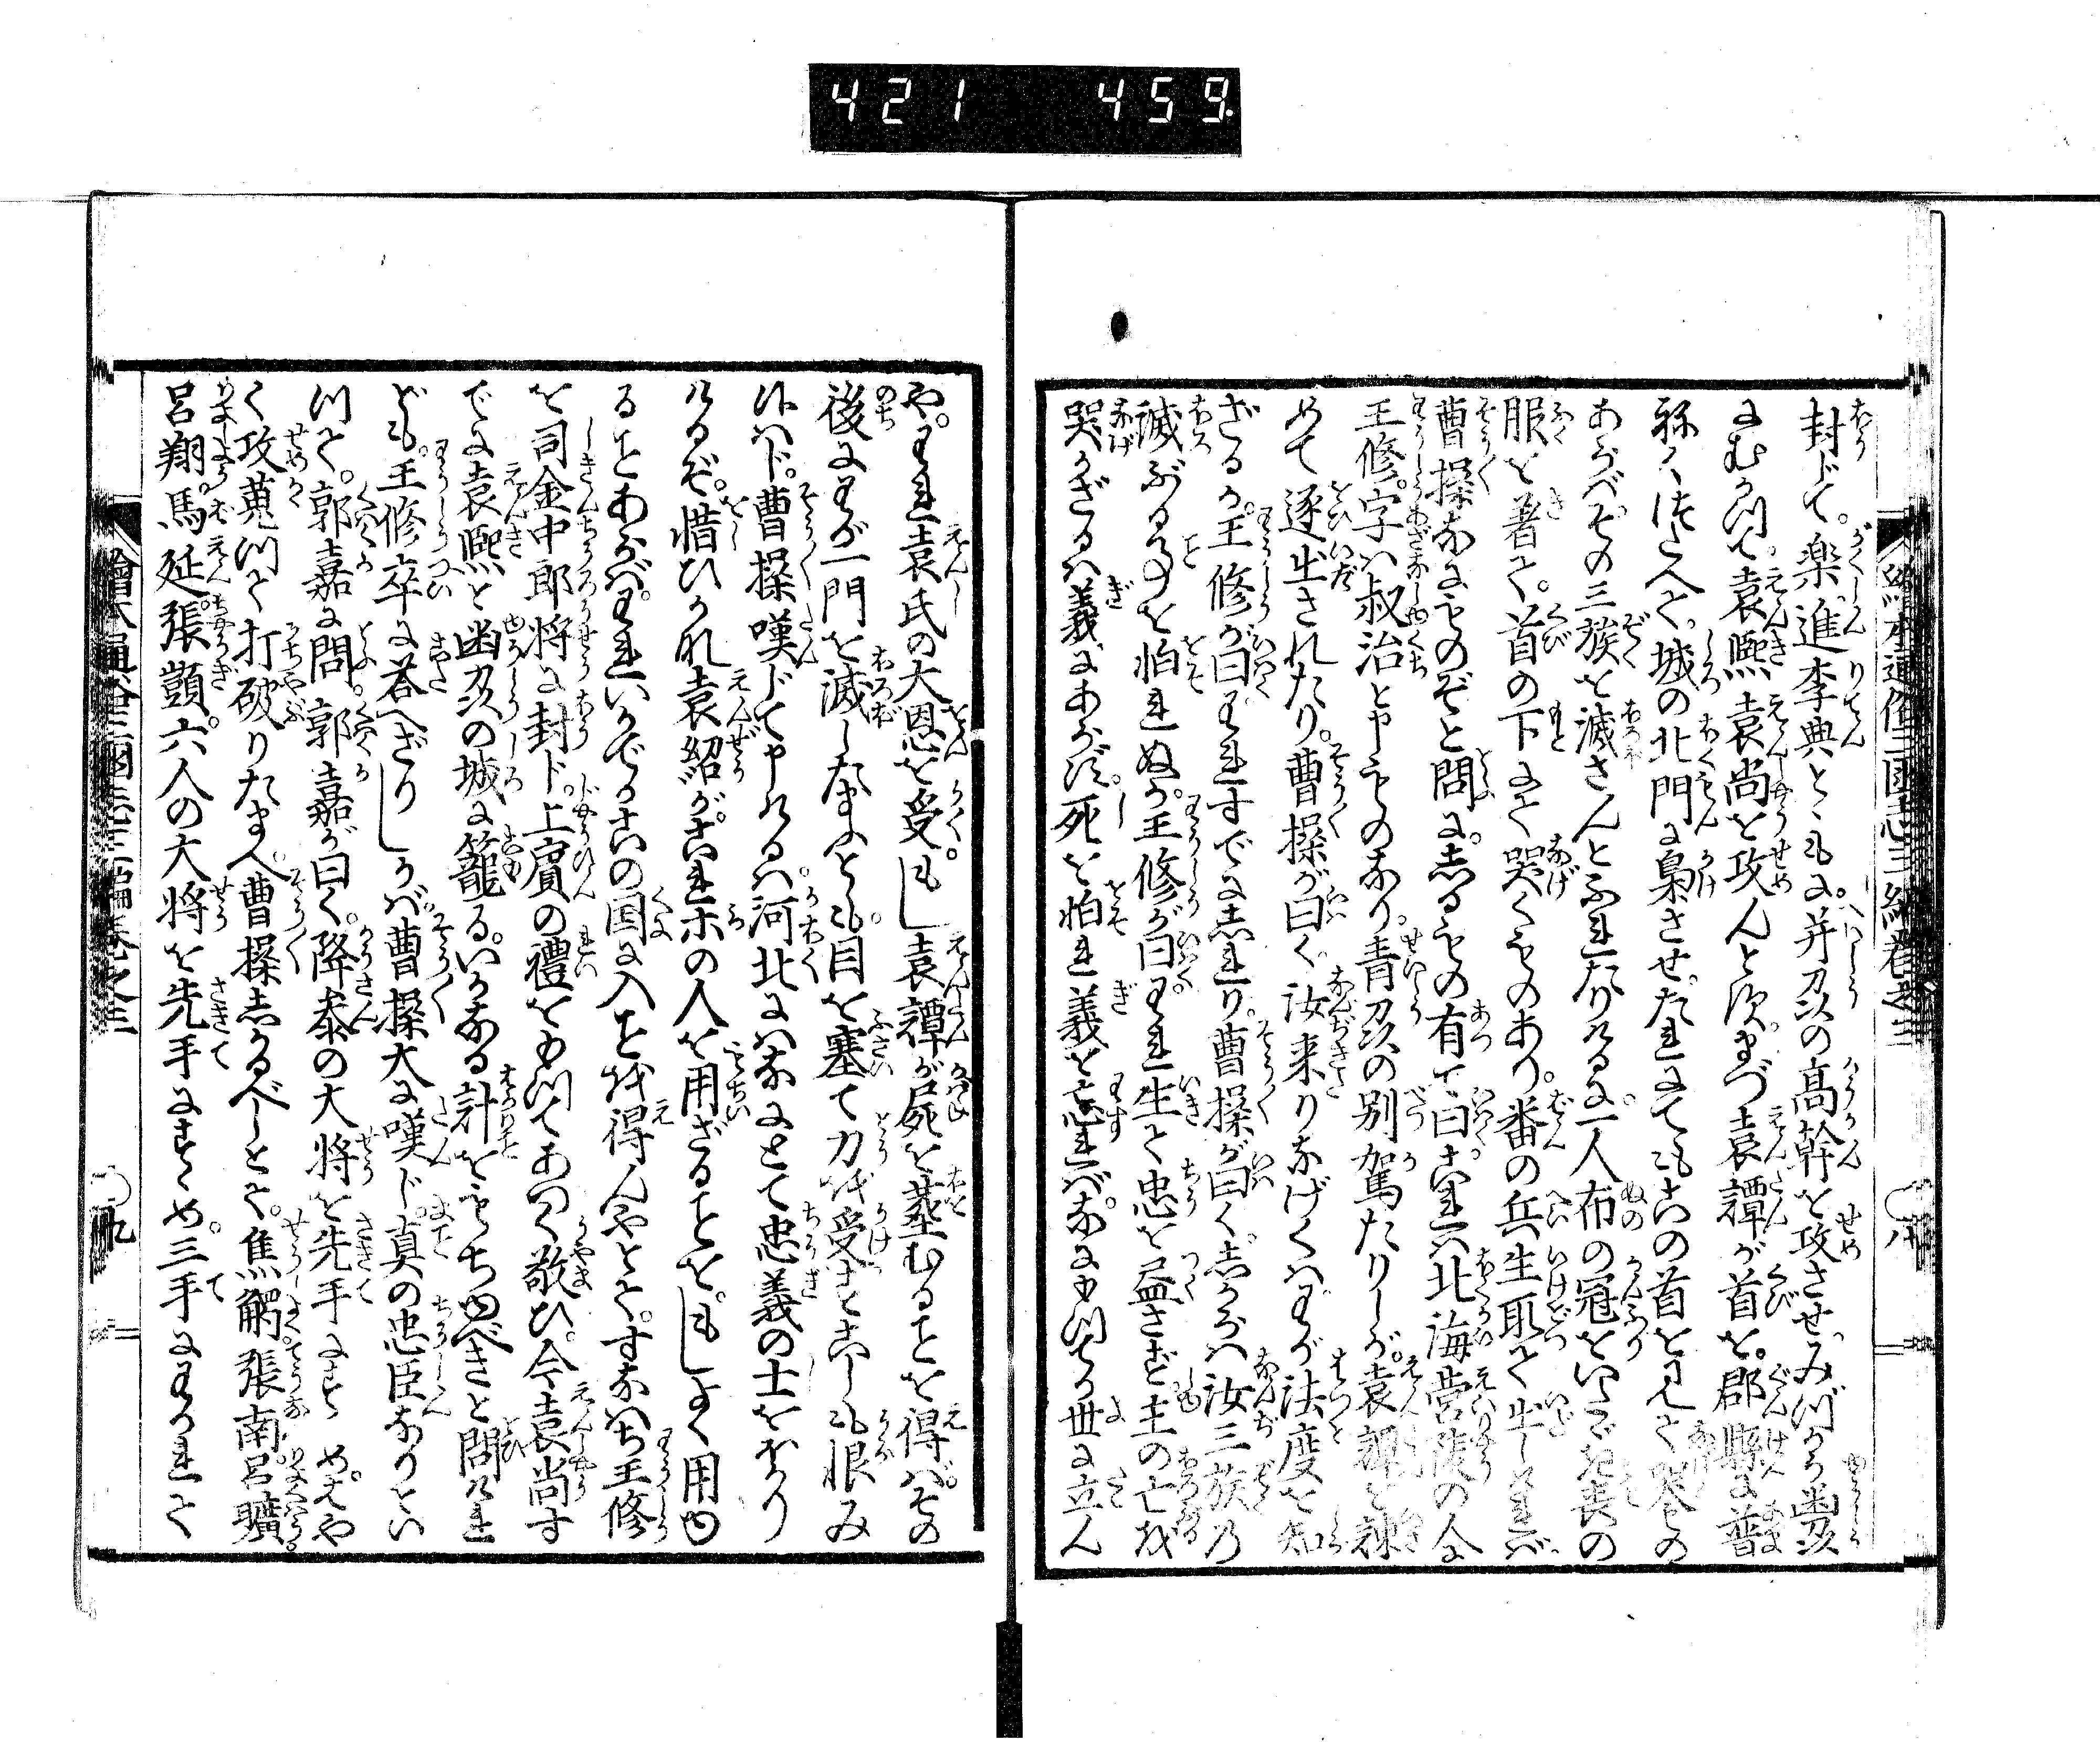 421 459
繪本通俗三國志三編卷之三 〇八
封じて。楽進李典とゝもに。并州の髙幹を攻させ。みづから幽州
にむかつて。袁熙袁尚を攻んとす。まづ袁譚が首を。郡縣に普
ねくつたへて。城の北門に梟させ。たれにてもこの首を見て哭もの
あらバ。その三族を滅さんとふれたりけるに。一人布の冠をいたゞき喪の
服を著て。首の下にて哭くものあり。番の兵生取て出しけれバ。
曹操なにものぞと問に。しるもの有て曰。これハ北海營陵の人
王修。字ハ叔治と申ものなり。青州の別駕たりしが。袁譚を諫
めて逐出されたり。曹操が曰く。汝来りなげくハわが法度を知
ざるか。王修が曰われすでにしれり。曹操が曰く。しからバ汝三族の
滅ぶる事を怕れぬか。王修が曰われ生て忠を益さず主の亡を
哭かざるハ義にあらず。死を怕れ義を忘れバ。なにゆつてか世に立ん
や。われ袁氏の大恩を受。もし袁譚が屍を葬むることを得バ。その
後にわが一門を滅したまふとも。目を塞て刀を受ことすこしも恨み
候ハド。曹操嘆じて申けるハ。河北にハなにとて忠義の士をほかり
けるぞ。惜ひかな袁紹が。これホの人を用ざることを。もしよく用ゆ
ることあらバ。われいかでかこの国に入ことを得んやとて。すなハち王修
を司金中郎将に封ド。上賓の禮をゆつてあつく敬ひ。今袁尚す
でに袁熙と幽州の城に籠る。いかなる計をもちゆべきと問けれ
ども。王修卒に答へざりしかバ。曹操大に嘆じ。真の忠臣なりとい
つて。郭嘉に問。郭嘉が曰く。降叅の大将を先手にすゝめ。はや
く攻蒐つて打破りたまへ。曹操しかるべしとて。焦觸。張南。呂曠。
呂翔。馬延。張顗。六人の大将を先手にすゝめ。三手にわかれて
繪本通俗三國志三編卷之三 〇九